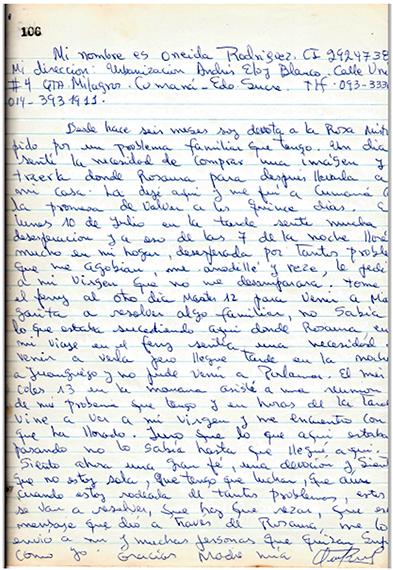 106
Mi nombre es Oneida Rodriguez. CI 2924738
Mi direccion: Urbanización Andrés Eloy Blanco. Calle Uno
#4 QTA Milagro. Cumaná - Edo. Sucre. Tlf. 093-3330
014-3931911.
Desde hace seis meses soy devota a la Rosa Místi
pido por un problema familiar que tengo. Un día
sentí la necesidad de comprar una imágen y
traerla donde Rosaura para después llevarla a
mi casa. La dejé aquí y me fuí a Cumaná c
la promesa de volver a los quince días. E
lunes 10 de Julio en la tarde sentí mucha
desesperación y a eso de las 7 de la noche lloré
mucho en mi hogar, desesperada por tantos proble
que me agobian, me arrodillé y recé, le pedí
a mi Virgen que no me desamparara. Tomé
el ferry al otro día Martes 12 para venir a Ma
garita a resolver algo familiar, no sabía
lo que estaba sucediendo aquí donde Rosaura, en
mi viaje en el ferry sentía una necesidad
venir a verla pero llegué tarde en la noche
a Juangriego y no pude venir a Porlamar. El mier
coles 13 en la mañana asistí a una reunion
de mi problema que tengo y en horas de la tarde
vine a ver a mi virgen y me encuentro con
que ha llorado. Juro que lo que aquí estaba
pasando no lo sabía hasta que llegué aquí.
Siento ahora una gran fé, una devoción y sient
que no estoy sola, que tengo que luchar, que aun
cuando estoy rodeada de tantos problemas, estos
se van a resolver, que hay que rezar, que es
mensaje que dió a través de Rosaura, me lo
envió a mí y muchas personas que quizás suf
como yo. Gracias Madre mía